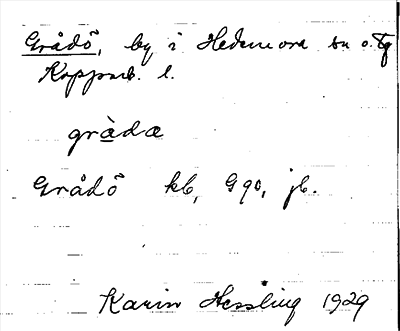 Grådö, by i Hedemora sn o. tg
Kopparb. l.
gràdæ
Grådö kb, G 90, jb.
Karin Hessling 1929